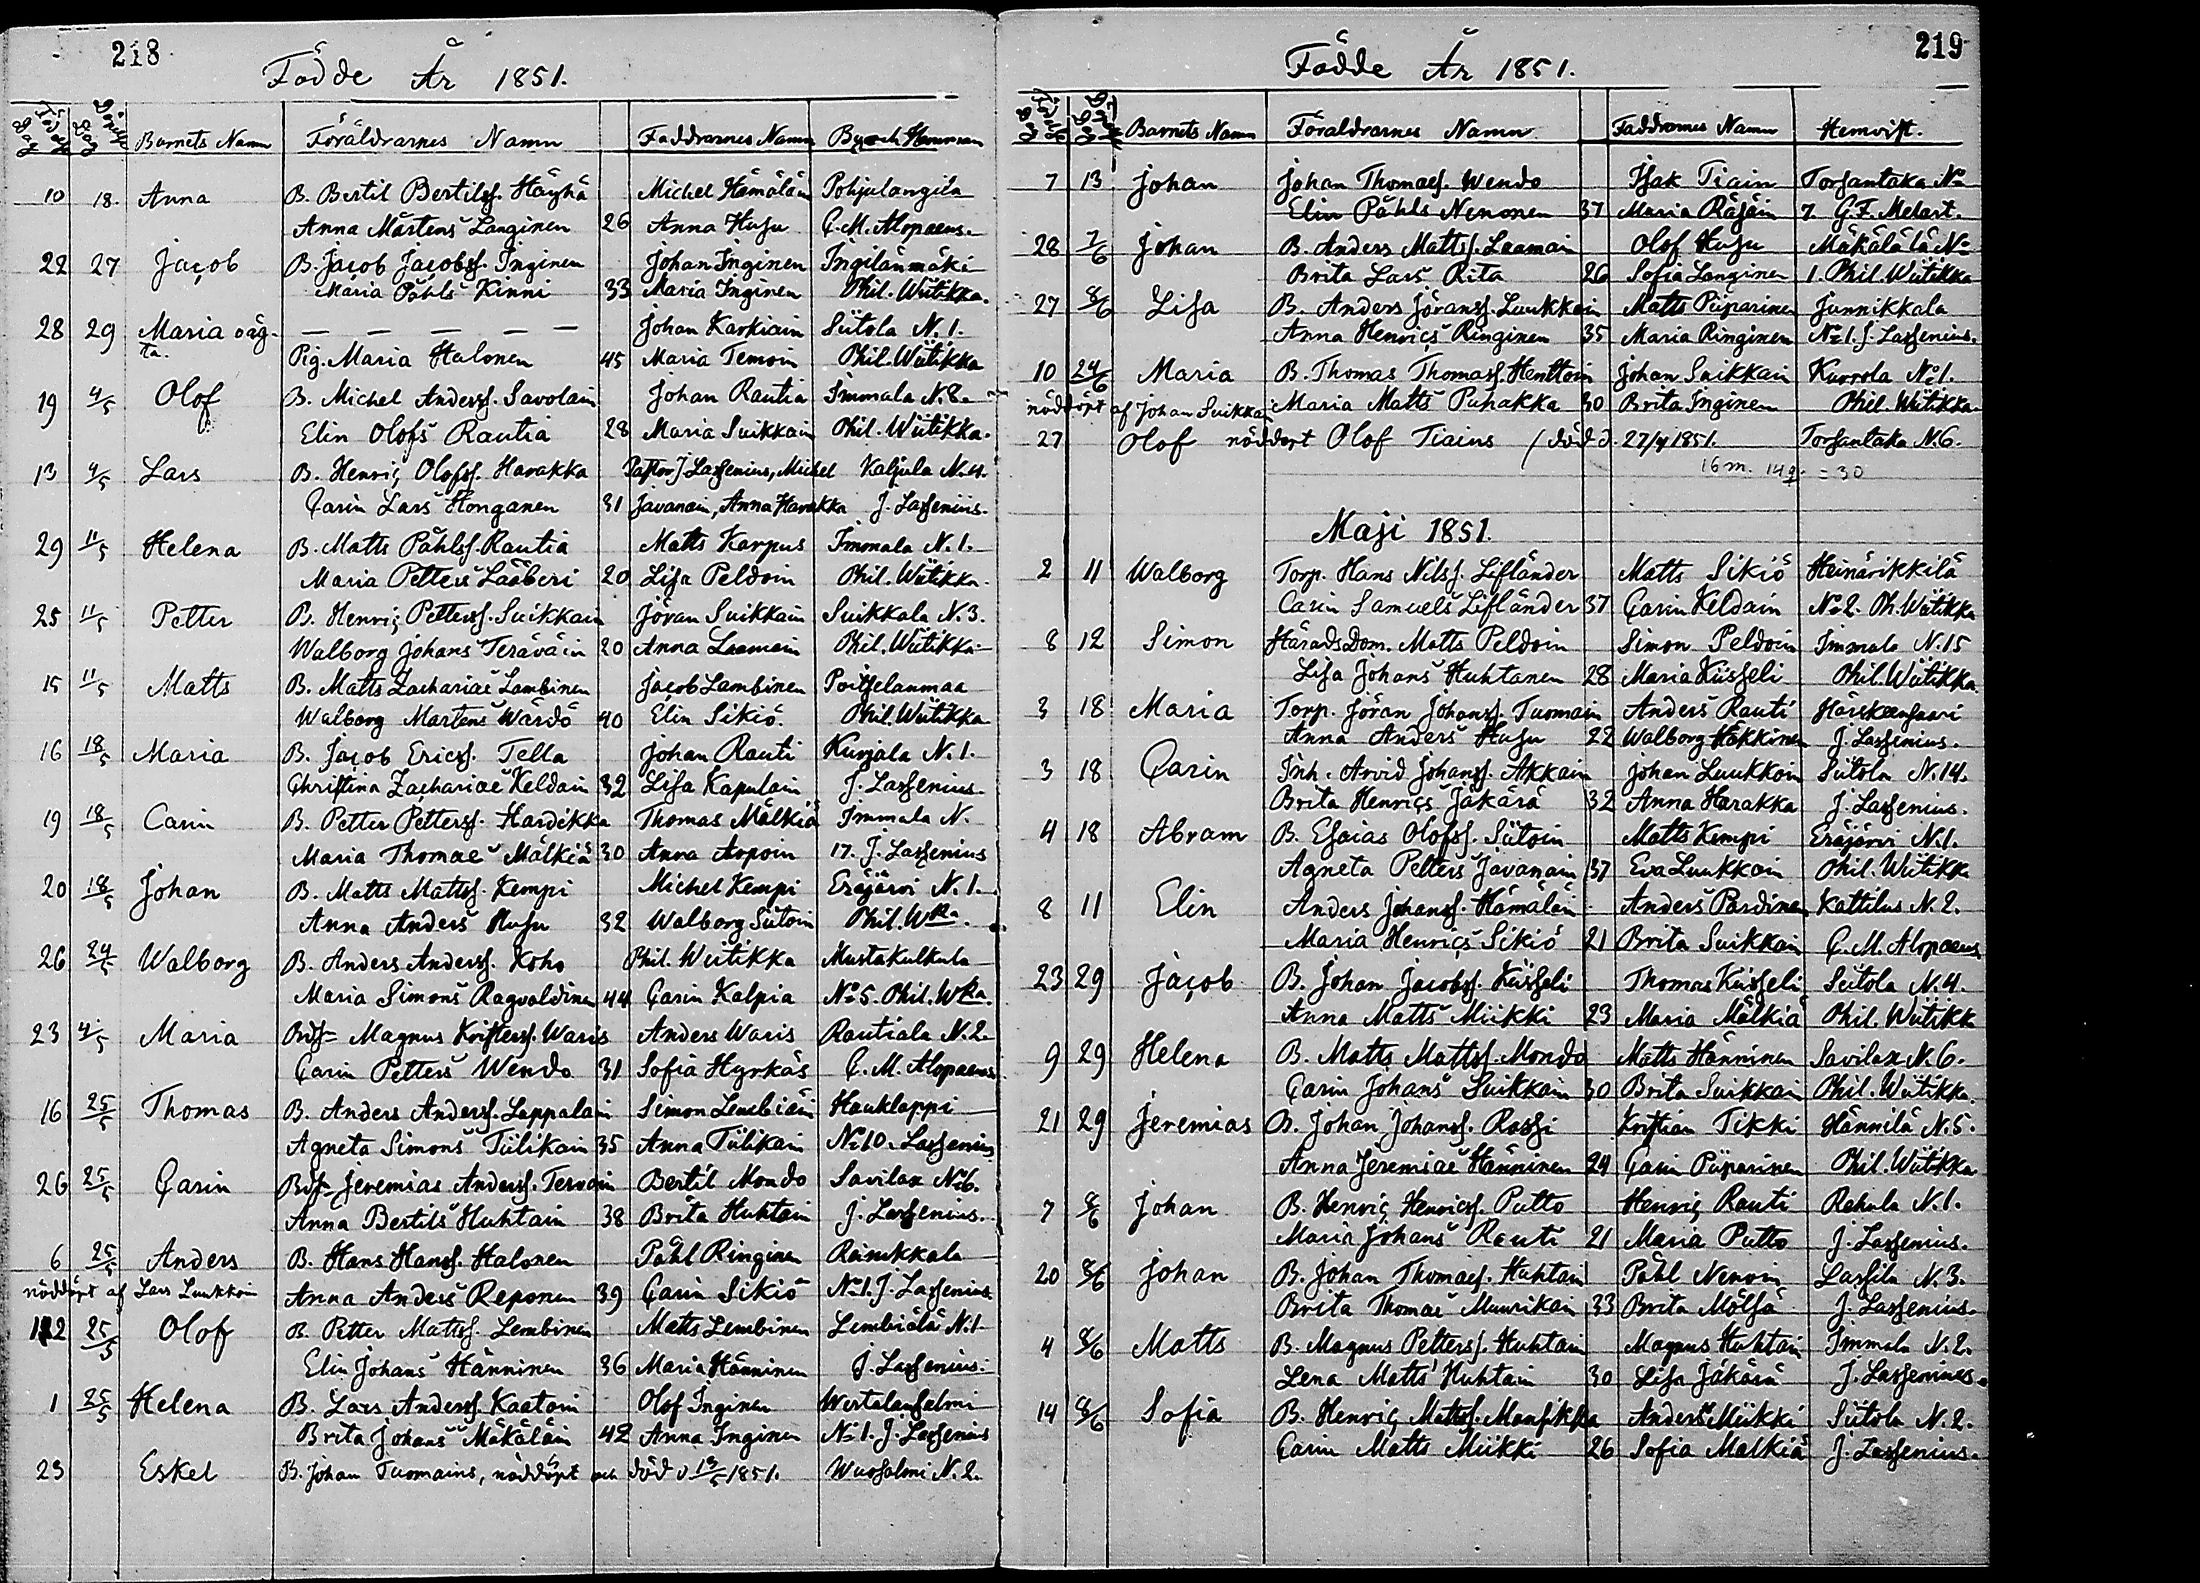 218
Födde År 1851.
Födelse Dag Döpelse Dag Barnets Namn Föräldrarnes Namn Faddrarnes Namn By och Hemman
10 18. Anna B. Bertil Bertilsf. Häyhä Michel Hämäläin Pohjalangila
Anna Mårtens Langinen 26 Anna Husu C. M. Alopaeus.
22 27 Jacob B. Jacob Jacobsf. Inginen Johan Inginen Ingilänmäki
Maria Påhls Kinni 33 Maria Inginen Phil. Wiitikka.
28 29 Maria oäg- — — — — — Johan Karkiain Siitola N. 1.
ta. Pig. Maria Halonen 45 Maria Temoin Phil. Wiitikka
19 4/5 Olof B. Michel Andersf. Savolain Johan Rautia Immala N. 8.
Elin Olofs Rautia 28 Maria Suikkain Phil. Wiitikka.
13 4/5 Lars B. Henric Olofsf. Harakka Pastor J. Lassenius, Michel Kaljula N. 4.
Carin Lars Honganen 31 Javanain, Anna Harakka J. Lassenius.
29 11/5 Helena B. Matts Påhlsf. Rautia Matts Karpus Immala N. 1.
Maria Petters Lääberi 20 Lisa Peldoin Phil. Wiitikka.
25 11/5 Petter B. Henric Pettersf. Suikkain Jöran Suikkain Suikkala N. 3.
Walborg Johans Teräväin 20 Anna Laamain Phil. Wiitikka
15 11/5 Matts B. Matts Zachariae Lambinen Jacob Lambinen Poitselanmaa
Walborg Martens Wärdö 40 Elin Sikiö. Phil. Wiitikka
16 18/5 Maria B. Jacob Ericsf. Tella Johan Rauti Kurjala N. 1.
Christina Zachariae Keldain 32 Lisa Kapulain J. Lassenius.
19 18/5 Carin B. Petter Pettersf. Hardikka Thomas Mälkiä Immala N.
Maria Thomae Mälkiä 30 Anna Aopoin 17. J. Lassenius
20 18/5 Johan B. Matts Mattsf. Kempi Michel Kempi Eräjärvi N. 1.
Anna Anders Husu 32 Walborg Siitoin Phil. Wka.
26 24/5 Walborg B. Anders Andersf. Koho Phil. Wiitikka Mustakulkula
Maria Simons Ragvaldinen 44 Carin Kalpia No 5. Phil. Wka.
23 4/5 Maria Bdf= Magnus Kristersf. Waris Anders Waris Rautiala N. 2.
Carin Petters Wendo 31 Sofia Hyrkäs C. M. Alopaeus
16 25/5 Thomas B. Anders Andersf. Lappalain Simon Lembiäin Hauklappi
Agneta Simons Tiilikain 35 Anna Tiilikain No 10. Lassenius
26 25/5 Carin Bdf= Jeremias Andersf. Tervoin Bertil Mondo Savilax No 6.
Anna Bertils Huhtain 38 Brita Huhtain J. Lassenius.
6 25/5 Anders B. Hans Hansf. Halonen Påhl Ringinen Reinikkala
nöddöpt af Lars Luukkoin Anna Anders Reponen 39 Carin Sikiö No 1. J. Lassenius
12 25/5 Olof B. Petter Mattsf. Lembinen Matts Lembinen Lembiälä N. 1
Elin Johans Hänninen 36 Maria Hänninen J. Lassenius.
1 25/5 Helena B. Lars Andersf. Kaatoin Olof Inginen Wirtalansalmi
Brita Johans Mäkäläin 42 Anna Inginen No 1. J. Lassenius
23 Eskel B. Johan Tuomains, nöddöpt och död d 13/5 1851. Wuosalmi N. 2.
219
Födde År 1851.
Födelse Dag Döpelse Dag Barnets Namn Föräldrarnes Namn Faddrarnes Namn Hemvist.
7 13 Johan Johan Thomaesf. Wendo Isak Tiain Torsantaka No
Elin Påhls Nenonen 37 Maria Räsäin 7. G. F. Melart.
28 7/6 Johan B. Anders Mattsf. Laamain Olof Husu Mäkälälä No
Brita Lars Rita 26 Sofia Langinen 1. Phil. Wiitikka
27 8/6 Lisa B. Anders Jöransf. Luukkain Matts Piiparinen Junnikkala
Anna Henrics Ringinen 35 Maria Ringinen No 1. J. Lassenius.
10 24/6 Maria B. Thomas Thomasf. Henttoin Johan Suikkain Kurrola No 1.
nöddöpt af Johan Suikkain Maria Matts Puhakka 30 Brita Inginen Phil. Wiitikka.
27 Olof nöddöpt Olof Tiains / död d. 27/4 1851. Torsantaka N. 6.
16 m. 14 q. = 30
Maji 1851.
2 11 Walborg Torp. Hans Nilsf. Lifländer Matts Sikiö Heinärikkilä
Carin Samuels Lifländer 37 Carin Keldain No 2. Ph. Wiitikka
8 12 Simon HäradsDom. Matts Peldoin Simon Peldoin Immala N. 15
Lisa Johans Huhtanen 28 Maria Kiisseli Phil. Wiitikka.
3 18 Maria Torp. Jöran Johansf. Tuomain Anders Rauti Härskeensaari
Anna Anders Husu 22 Walborg Häkkinen J. Lassenius.
3 18 Carin Inh. Arvid Johansf. Akkain Johan Luukkoin Siitola N. 14.
Brita Henrics Jäkärä 32 Anna Harakka J. Lassenius.
4 18 Abram B. Esaias Olofsf. Siitoin Matts Kempi Eräjärvi N. 1.
Agneta Petters Javanain 37 Eva Luukkain Phil. Wiitikka
8 11 Elin Anders Johansf. Hämäläin Anders Pardinen Kattilus N. 2.
Maria Henrics Sikiö 21 Brita Suikkain C. M. Alopaeus
23 29 Jacob B. Johan Jacobsf. Kiisseli Thomas Kiisseli Siitola N. 4.
Anna Matts Miikki 23 Maria Mälkiä Phil. Wiitikk
9 29 Helena B. Matts Mattsf. Mondo Matts Hänninen Savilax N. 6.
Carin Johans Suikkain 30 Brita Suikkain Phil. Wiitikka.
21 29 Jeremias B. Johan Johansf. Rossi Kristian Tikki Hännilä N. 5.
Anna Jeremiae Hänninen 24 Carin Piiparinen Phil. Wiitikka
7 8/6 Johan B. Henric Henricsf. Putto Henric Rauti Rahula N. 1.
Maria Johans Rauti 21 Maria Putto J. Lassenius.
20 8/6 Johan B. Johan Thomaesf. Huhtain Påhl Nenoin Lassila N. 3.
Brita Thomae Muurikain 33 Brita Mölsä J. Lassenius.
4 8/6 Matts B. Magnus Pettersf. Huhtain Magnus Huhtain Immala N. 2.
Lena Matts Huhtain 30 Lisa Jäkärä J. Lassenius.
14 8/6 Sofia B. Henric Mattsf. Mansikka Anders Miikki Siitola N. 2.
Carin Matts Miikki 26 Sofia Malkiä J. Lassenius.